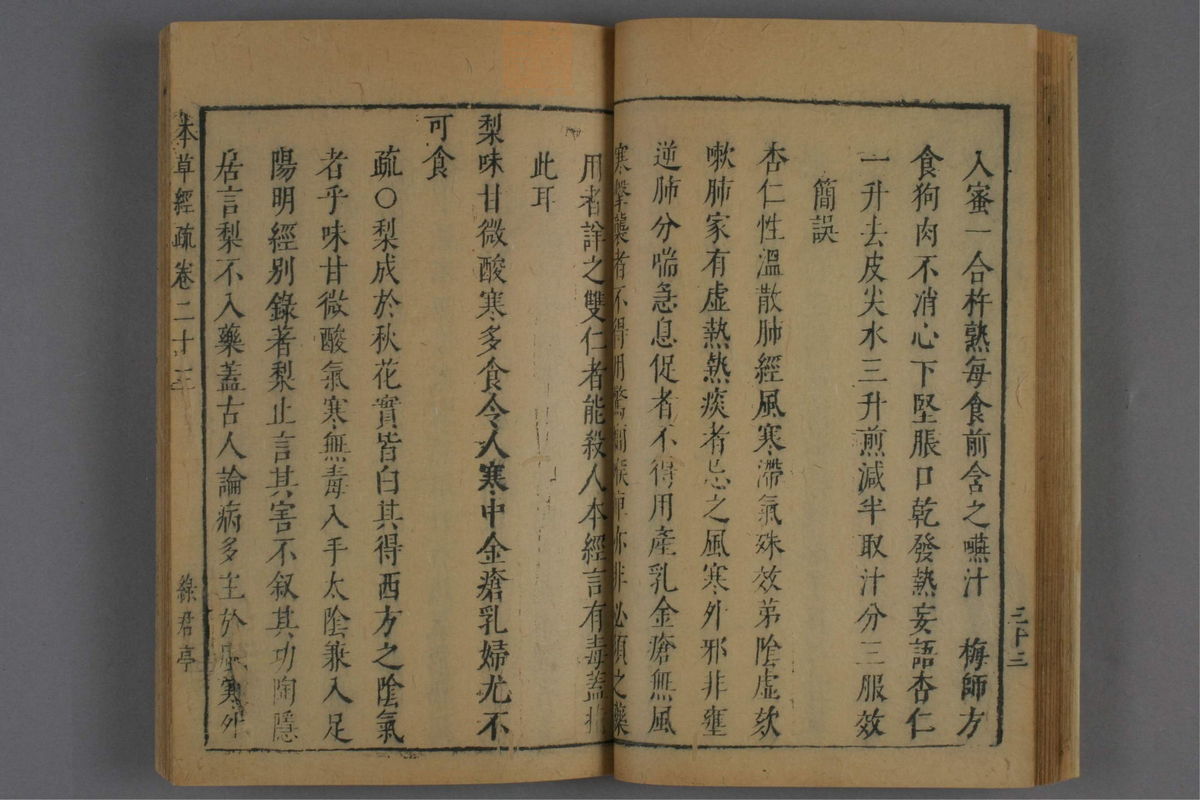 三十三
入蜜一合杵熟每食前含之嚥汁　梅師方
食狗肉不消心下堅脹口乾發熱妄語杏仁
一升去皮尖水三升煎減半取汁分三服效
簡誤
杏仁性溫散肺經風寒滯氣殊效第陰虛欬
嗽肺家有虛熱熱痰者忌之風寒外邪非壅
逆肺分喘急息促者不得用產乳金瘡無風
寒擊襲者不得用驚癇喉痺亦非必須之藥
用者詳之雙仁者能殺人本經言有毒蓋指
此耳
梨味甘微酸寒多食令人寒中金瘡乳婦尤不
可食
疏○梨成於秋花實皆白其得西方之陰氣
者乎味甘微酸氣寒無毒入手太陰兼入足
陽明經別錄著梨止言其害不叙其功陶隱
居言梨不入藥蓋古人論病多主於風寒外
本草經疏　卷二十三　綠君亭